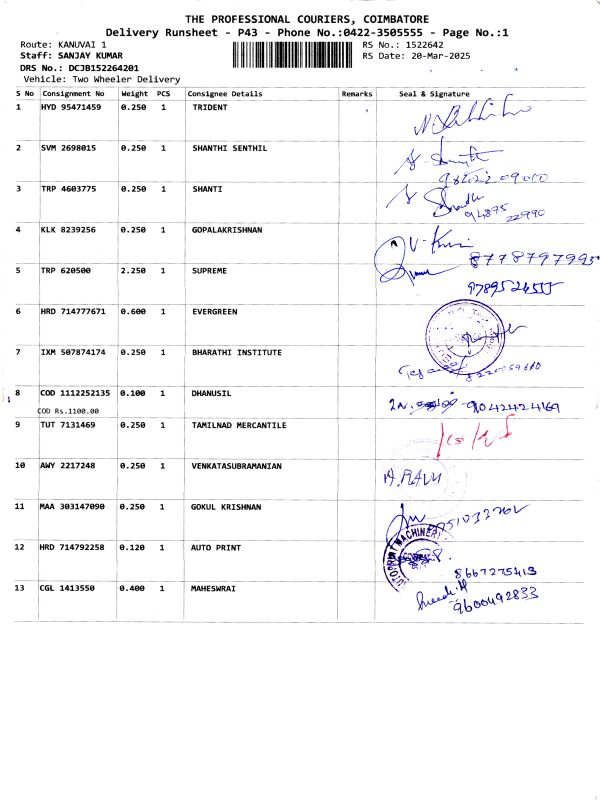 THE PROFESSIONAL COURIERS, COIMBATORE
Delivery Runsheet - P43 - Phone No.:0422-3505555 - Page No.:1
Route: KANUVAI 1 RS No.: 1522642
Staff: SANJAY KUMAR RS Date: 20-Mar-2025
DRS No.: DCJB152264201
Vehicle: Two Wheeler Delivery
S No Consignment No Weight PCS Consignee Details Remarks Seal & Signature
1 HYD 95471459 0.250 1 TRIDENT
2 SVM 2698015 0.250 1 SHANTHI SENTHIL
3 TRP 4603775 0.250 1 SHANTI
94875 22990
4 KLK 8239256 0.250 1 GOPALAKRISHNAN
8778797995
5 TRP 620500 2.250 1 SUPREME
6 HRD 714777671 0.600 1 EVERGREEN
7 IXM 507874174 0.250 1 BHARATHI INSTITUTE
8 COD 1112252135 0.100 1 DHANUSIL 9042424169
COD Rs.1100.00
9 TUT 7131469 0.250 1 TAMILNAD MERCANTILE
10 AWY 2217248 0.250 1 VENKATASUBRAMANIAN
11 MAA 303147090 0.250 1 GOKUL KRISHNAN
12 HRD 714792258 0.120 1 AUTO PRINT MACHINERY
8667275413
13 CGL 1413550 0.400 1 MAHESWRAI
9600492833